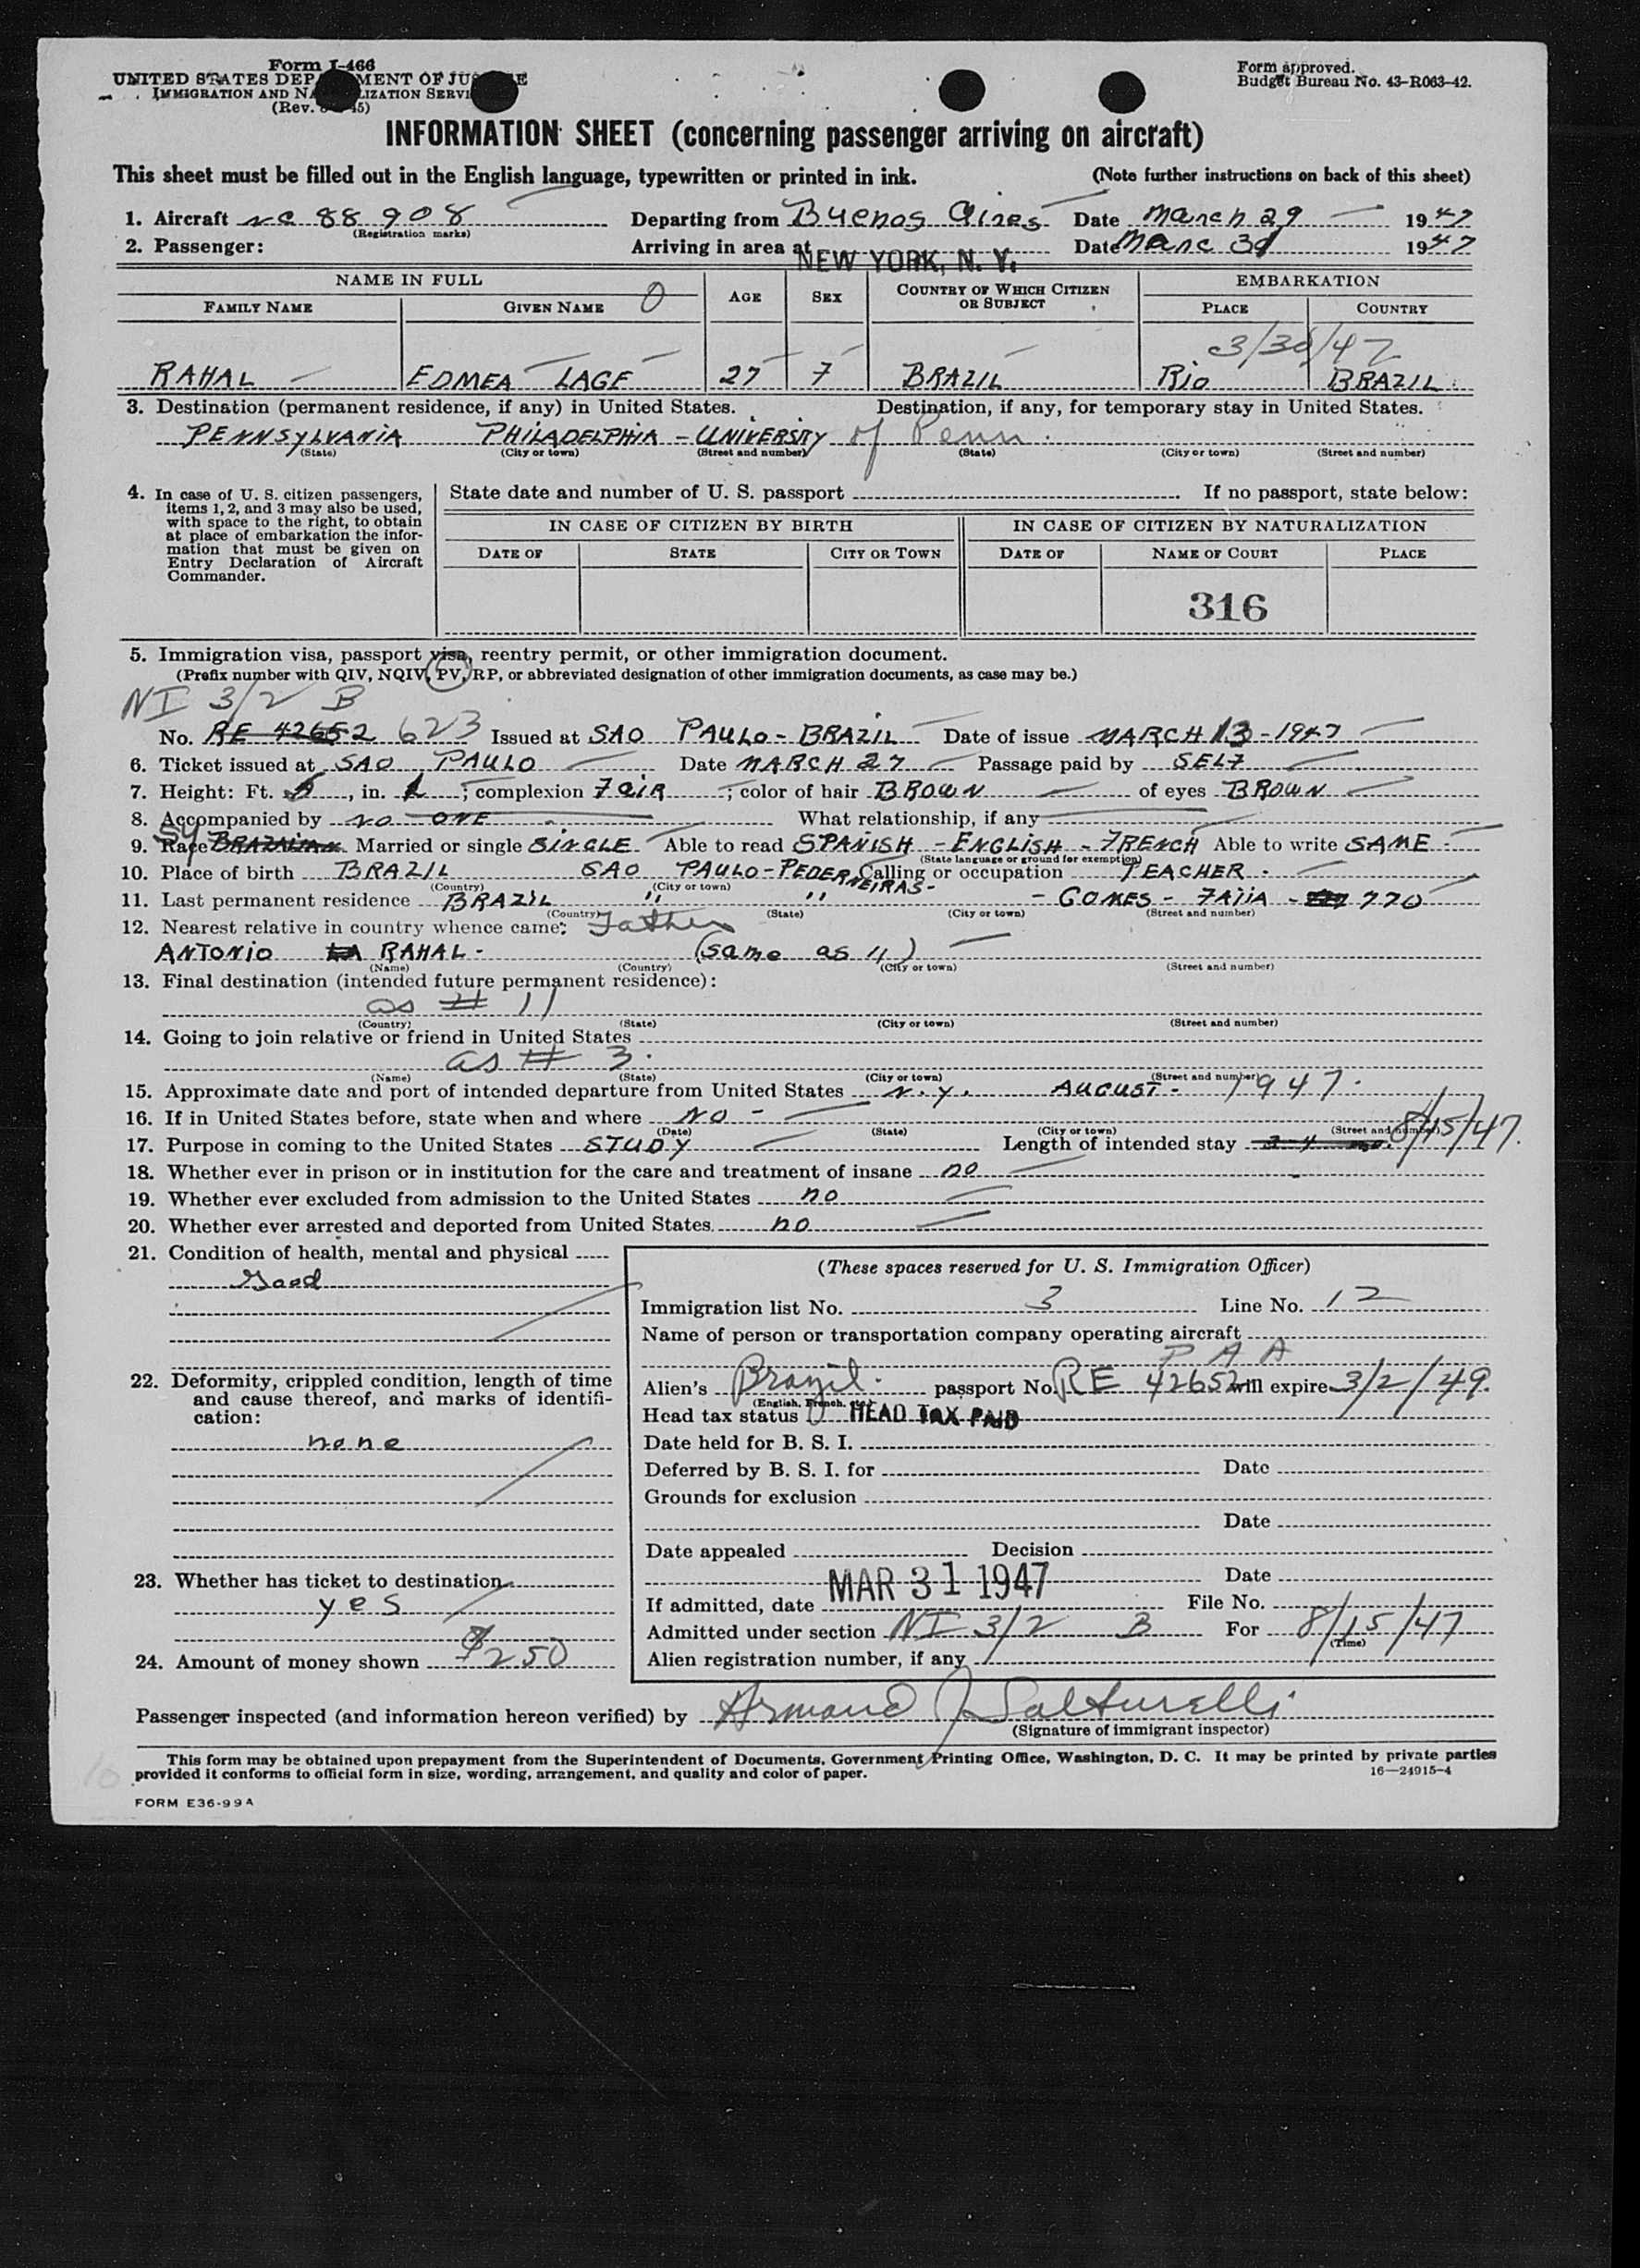 Form I-466
UNITED STATES DEP MENT OF JUS E
IMMIGRATION AND NA LIZATION SERVI
(Rev. 45)
Form approved.
Budget Bureau No. 43-R063-42.
INFORMATION SHEET (concerning passenger arriving on aircraft)
This sheet must be filled out in the English language, typewritten or printed in ink. (Note further instructions on back of this sheet)
1. Aircraft NC 88908 Departing from Buenos Aires Date March 29 1947
(Registration marks)
2. Passenger: Arriving in area at NEW YORK, N. Y. Date Marc 31 1947
NAME IN FULL AGE SEX COUNTRY OF WHICH CITIZEN OR SUBJECT EMBARKATION
FAMILY NAME GIVEN NAME 0 PLACE COUNTRY
3/30/47
RAHAL EDMEA LAGE 27 F BRAZIL RIO BRAZIL
3. Destination (permanent residence, if any) in United States. Destination, if any, for temporary stay in United States.
PENNSYLVANIA PHILADELPHIA - UNIVERSITY of Penn.
(State) (City or town) (Street and number) (State) (City or town) (Street and number)
4. In case of U. S. citizen passengers, items 1, 2, and 3 may also be used, with space to the right, to obtain at place of embarkation the information that must be given on Entry Declaration of Aircraft Commander.
State date and number of U. S. passport . If no passport, state below:
IN CASE OF CITIZEN BY BIRTH IN CASE OF CITIZEN BY NATURALIZATION
DATE OF STATE CITY OR TOWN DATE OF NAME OF COURT PLACE
316
5. Immigration visa, passport visa, reentry permit, or other immigration document.
(Prefix number with QIV, NQIV, PV, RP, or abbreviated designation of other immigration documents, as case may be.)
NI 3/2 B
No. RE 42652 623 Issued at SAO PAULO - BRAZIL Date of issue MARCH 13 - 1947
6. Ticket issued at SAO PAULO Date MARCH 27 Passage paid by SELF
7. Height: Ft. 5, in. ; complexion FAIR; color of hair BROWN of eyes BROWN
8. Accompanied by NO ONE What relationship, if any
9. Race SY Married or single SINGLE Able to read SPANISH - ENGLISH - FRENCH Able to write SAME
(State language or ground for exemption)
10. Place of birth BRAZIL SAO PAULO - PEDERNEIRAS - Calling or occupation TEACHER
(Country) (City or town)
11. Last permanent residence BRAZIL " " - GOMES - FAIIA - 770
(Country) (State) (City or town) (Street and number)
12. Nearest relative in country whence came: Father
ANTONIO RAHAL - (same as 11)
(Name) (Country) (City or town) (Street and number)
13. Final destination (intended future permanent residence):
as # 11
(Country) (State) (City or town) (Street and number)
14. Going to join relative or friend in United States
as # 3.
(Name) (State) (City or town) (Street and number)
15. Approximate date and port of intended departure from United States N.Y. AUGUST - 1947.
16. If in United States before, state when and where NO -
(Date) (State) (City or town) (Street and number)
17. Purpose in coming to the United States STUDY Length of intended stay 8/15/47.
18. Whether ever in prison or in institution for the care and treatment of insane no
19. Whether ever excluded from admission to the United States no
20. Whether ever arrested and deported from United States no
21. Condition of health, mental and physical
Good
22. Deformity, crippled condition, length of time and cause thereof, and marks of identification:
none
23. Whether has ticket to destination
yes
24. Amount of money shown $250
(These spaces reserved for U. S. Immigration Officer)
Immigration list No. 3 Line No. 12
Name of person or transportation company operating aircraft
P A A
Alien's Brazil. passport No. RE 42652 will expire 3/2/49.
(English, French, etc.)
Head tax status HEAD TAX PAID
Date held for B. S. I.
Deferred by B. S. I. for Date
Grounds for exclusion
Date
Date appealed Decision
Date
If admitted, date MAR 31 1947 File No.
Admitted under section NI 3/2 B For 8/15/47
(Time)
Alien registration number, if any
Passenger inspected (and information hereon verified) by Armand J Salturelli
(Signature of immigrant inspector)
This form may be obtained upon prepayment from the Superintendent of Documents, Government Printing Office, Washington, D. C. It may be printed by private parties
provided it conforms to official form in size, wording, arrangement, and quality and color of paper. 16—24915-4
FORM E36-99A